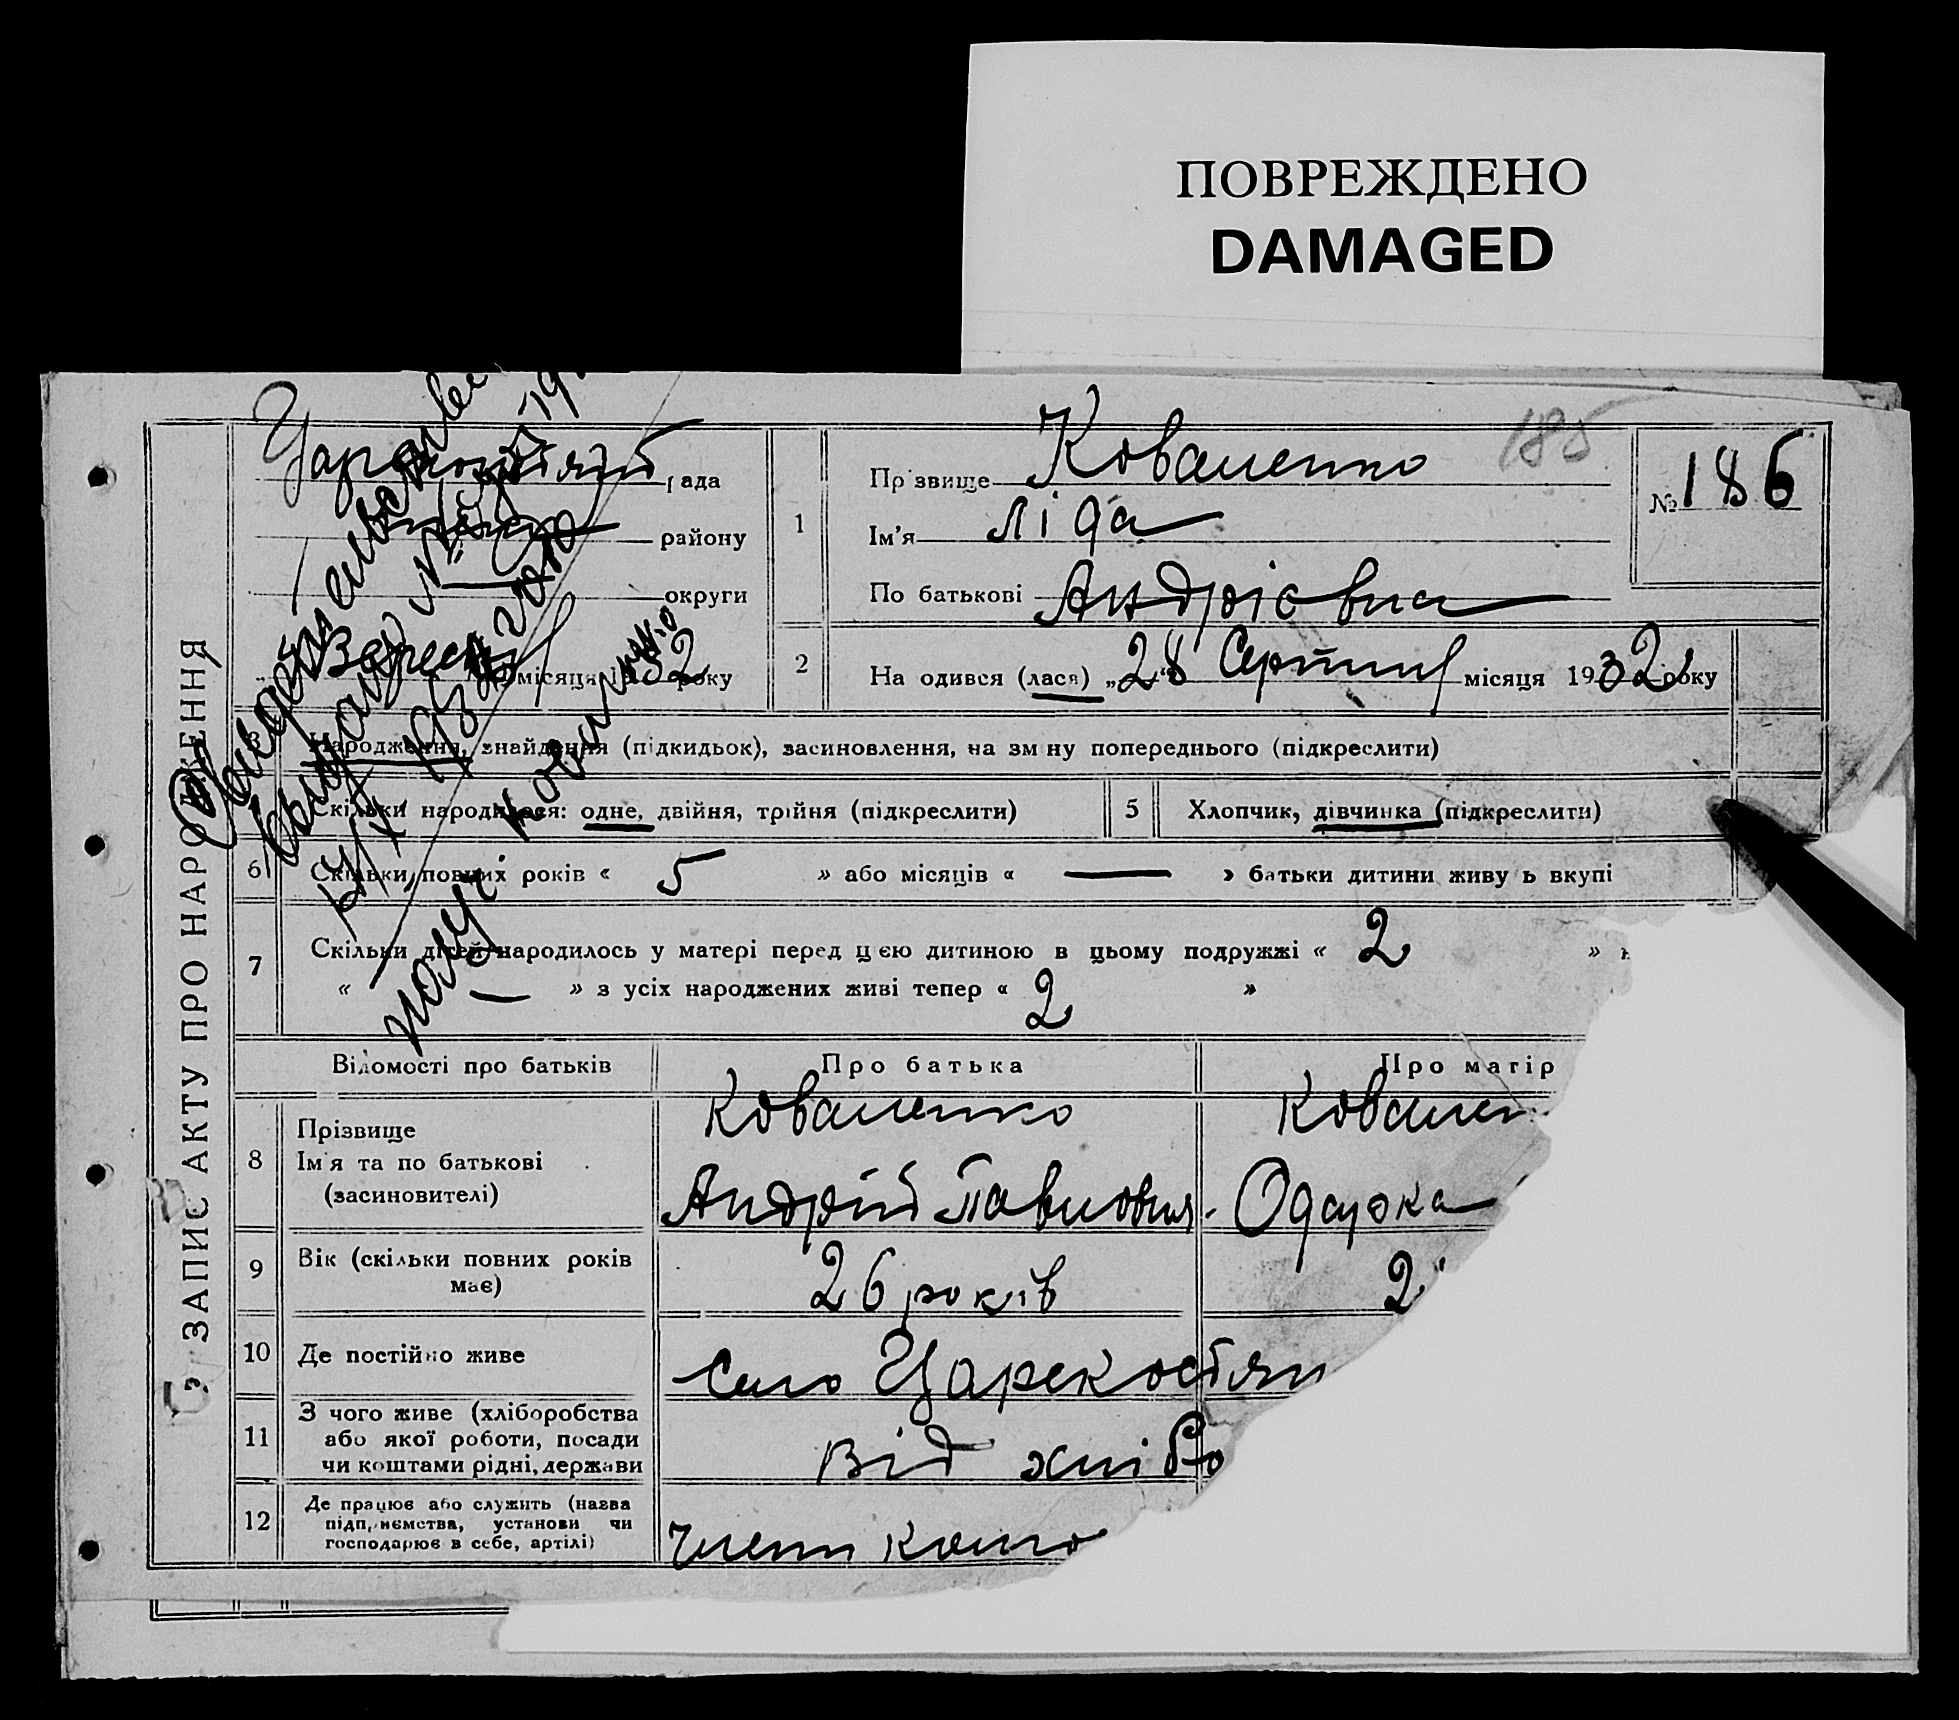 ПОВРЕЖДЕНО
DAMAGED
ЗАПИС АКТУ ПРО НАРОДЖЕННЯ
рада
району
округи
Вересня місяця 1932 року
1
Прізвище Коваленко
185
№ 186
Ім'я Ліда
По батькові Андрієвна
2
На одився (лася) „28" Серпня місяця 1932 року
3
Народження, знайдення (підкидьок), засиновлення, на зм ну попереднього (підкреслити)
Скільки народилося: одне, двійня, трійня (підкреслити)
5
Хлопчик, дівчинка (підкреслити)
6
Скільки повних років « 5 » або місяців « — » батьки дитини живу ь вкупі
7
Скільки дітей народилось у матері перед цією дитиною в цьому подружжі « 2 »
« — » з усіх народжених живі тепер « 2 »
Відомості про батьків
Про батька
Про матір
8
Прізвище
Ім'я та по батькові
(засиновителі)
Коваленко
Андрій Павлович
Ковален
Одарка
9
Вік (скільки повних років
має)
26 років
2
10
Де постійно живе
село Царекостян
11
З чого живе (хліборобства
або якої роботи, посади
чи коштами рідні, держави
від хлібо
12
Де працює або служить (назва
підприємства, установи чи
господарює в себе, артілі)
Член